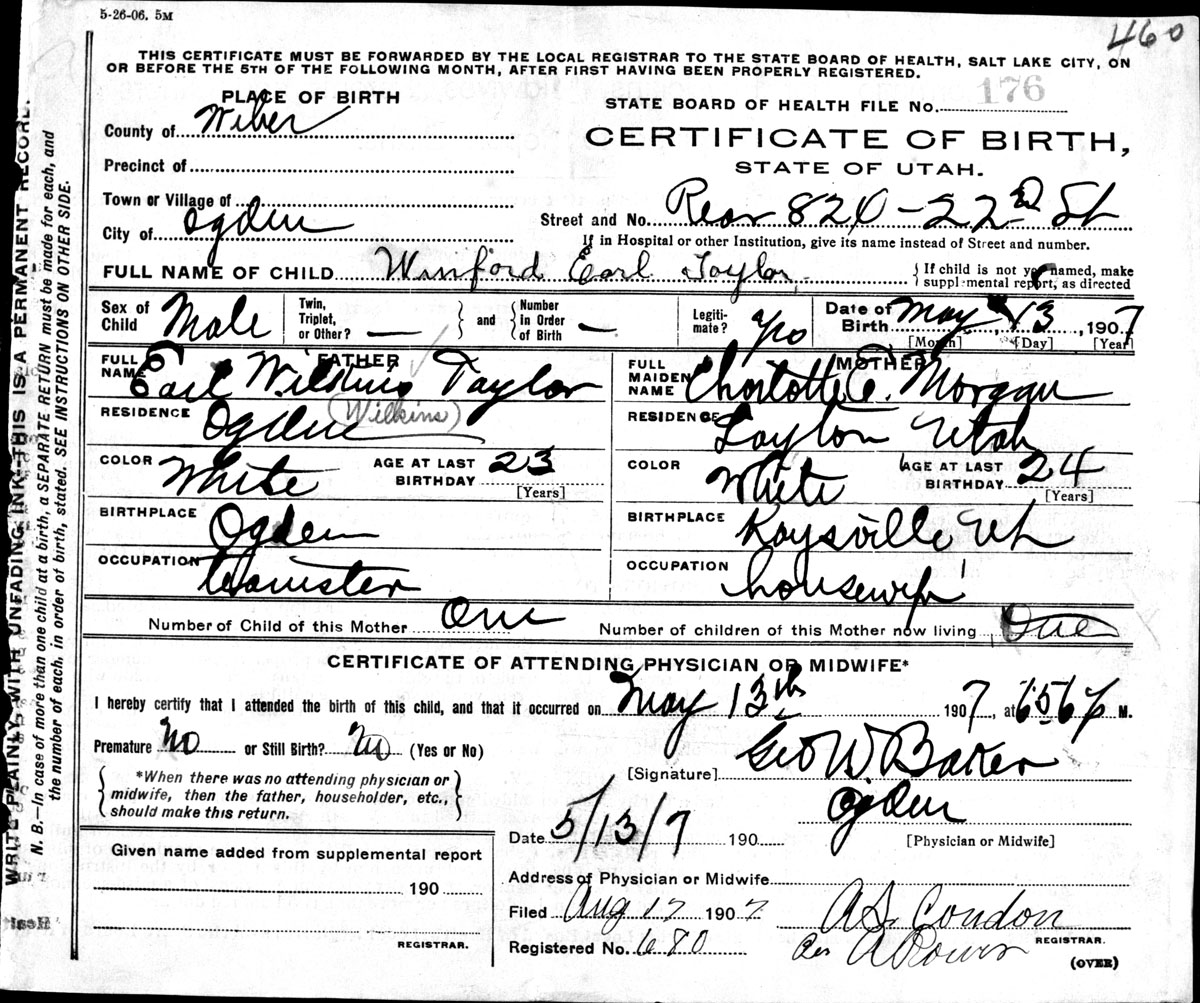 5-26-06. 5M
460
THIS CERTIFICATE MUST BE FORWARDED BY THE LOCAL REGISTRAR TO THE STATE BOARD OF HEALTH, SALT LAKE CITY, ON
OR BEFORE THE 5TH OF THE FOLLOWING MONTH, AFTER FIRST HAVING BEEN PROPERLY REGISTERED.
PLACE OF BIRTH
STATE BOARD OF HEALTH FILE No. 176
County of Weber
CERTIFICATE OF BIRTH,
STATE OF UTAH.
Precinct of
Town or Village of
City of Ogden
Street and No. Rear 820 - 22nd St
If in Hospital or other Institution, give its name instead of Street and number.
FULL NAME OF CHILD Winford Earl Taylor { If child is not yet named, make
supplemental report, as directed
Sex of Child Male Twin, Triplet, or Other? — } and { Number In Order of Birth — Legitimate? Date of Birth May 13, 1907
[Month] [Day] [Year]
FATHER
MOTHER
FULL NAME Earl Wilkins Taylor
(Wilkins)
FULL MAIDEN NAME Charlotte E. Morgan
RESIDENCE Ogden
RESIDENCE Layton Utah
COLOR White AGE AT LAST BIRTHDAY 23 [Years]
COLOR White AGE AT LAST BIRTHDAY 24 [Years]
BIRTHPLACE Ogden
BIRTHPLACE Kaysville Ut
OCCUPATION teamster
OCCUPATION housewife
Number of Child of this Mother One Number of children of this Mother now living One
CERTIFICATE OF ATTENDING PHYSICIAN OR MIDWIFE*
I hereby certify that I attended the birth of this child, and that it occurred on May 13th 1907, at M.
Premature No or Still Birth? No (Yes or No)
{ *When there was no attending physician or
midwife, then the father, householder, etc.,
should make this return. }
[Signature] Geo W. Baker
Ogden
[Physician or Midwife]
Date 5/13/7 190
Given name added from supplemental report
190
REGISTRAR.
Address of Physician or Midwife
Filed Aug 17 1907.
A S. Condon
REGISTRAR.
Registered No. 680
(OVER)
WRITE PLAINLY WITH UNFADING INK—THIS IS A PERMANENT RECORD.
N. B.—In case of more than one child at a birth, a SEPARATE RETURN must be made for each, and
the number of each, in order of birth, stated. SEE INSTRUCTIONS ON OTHER SIDE.